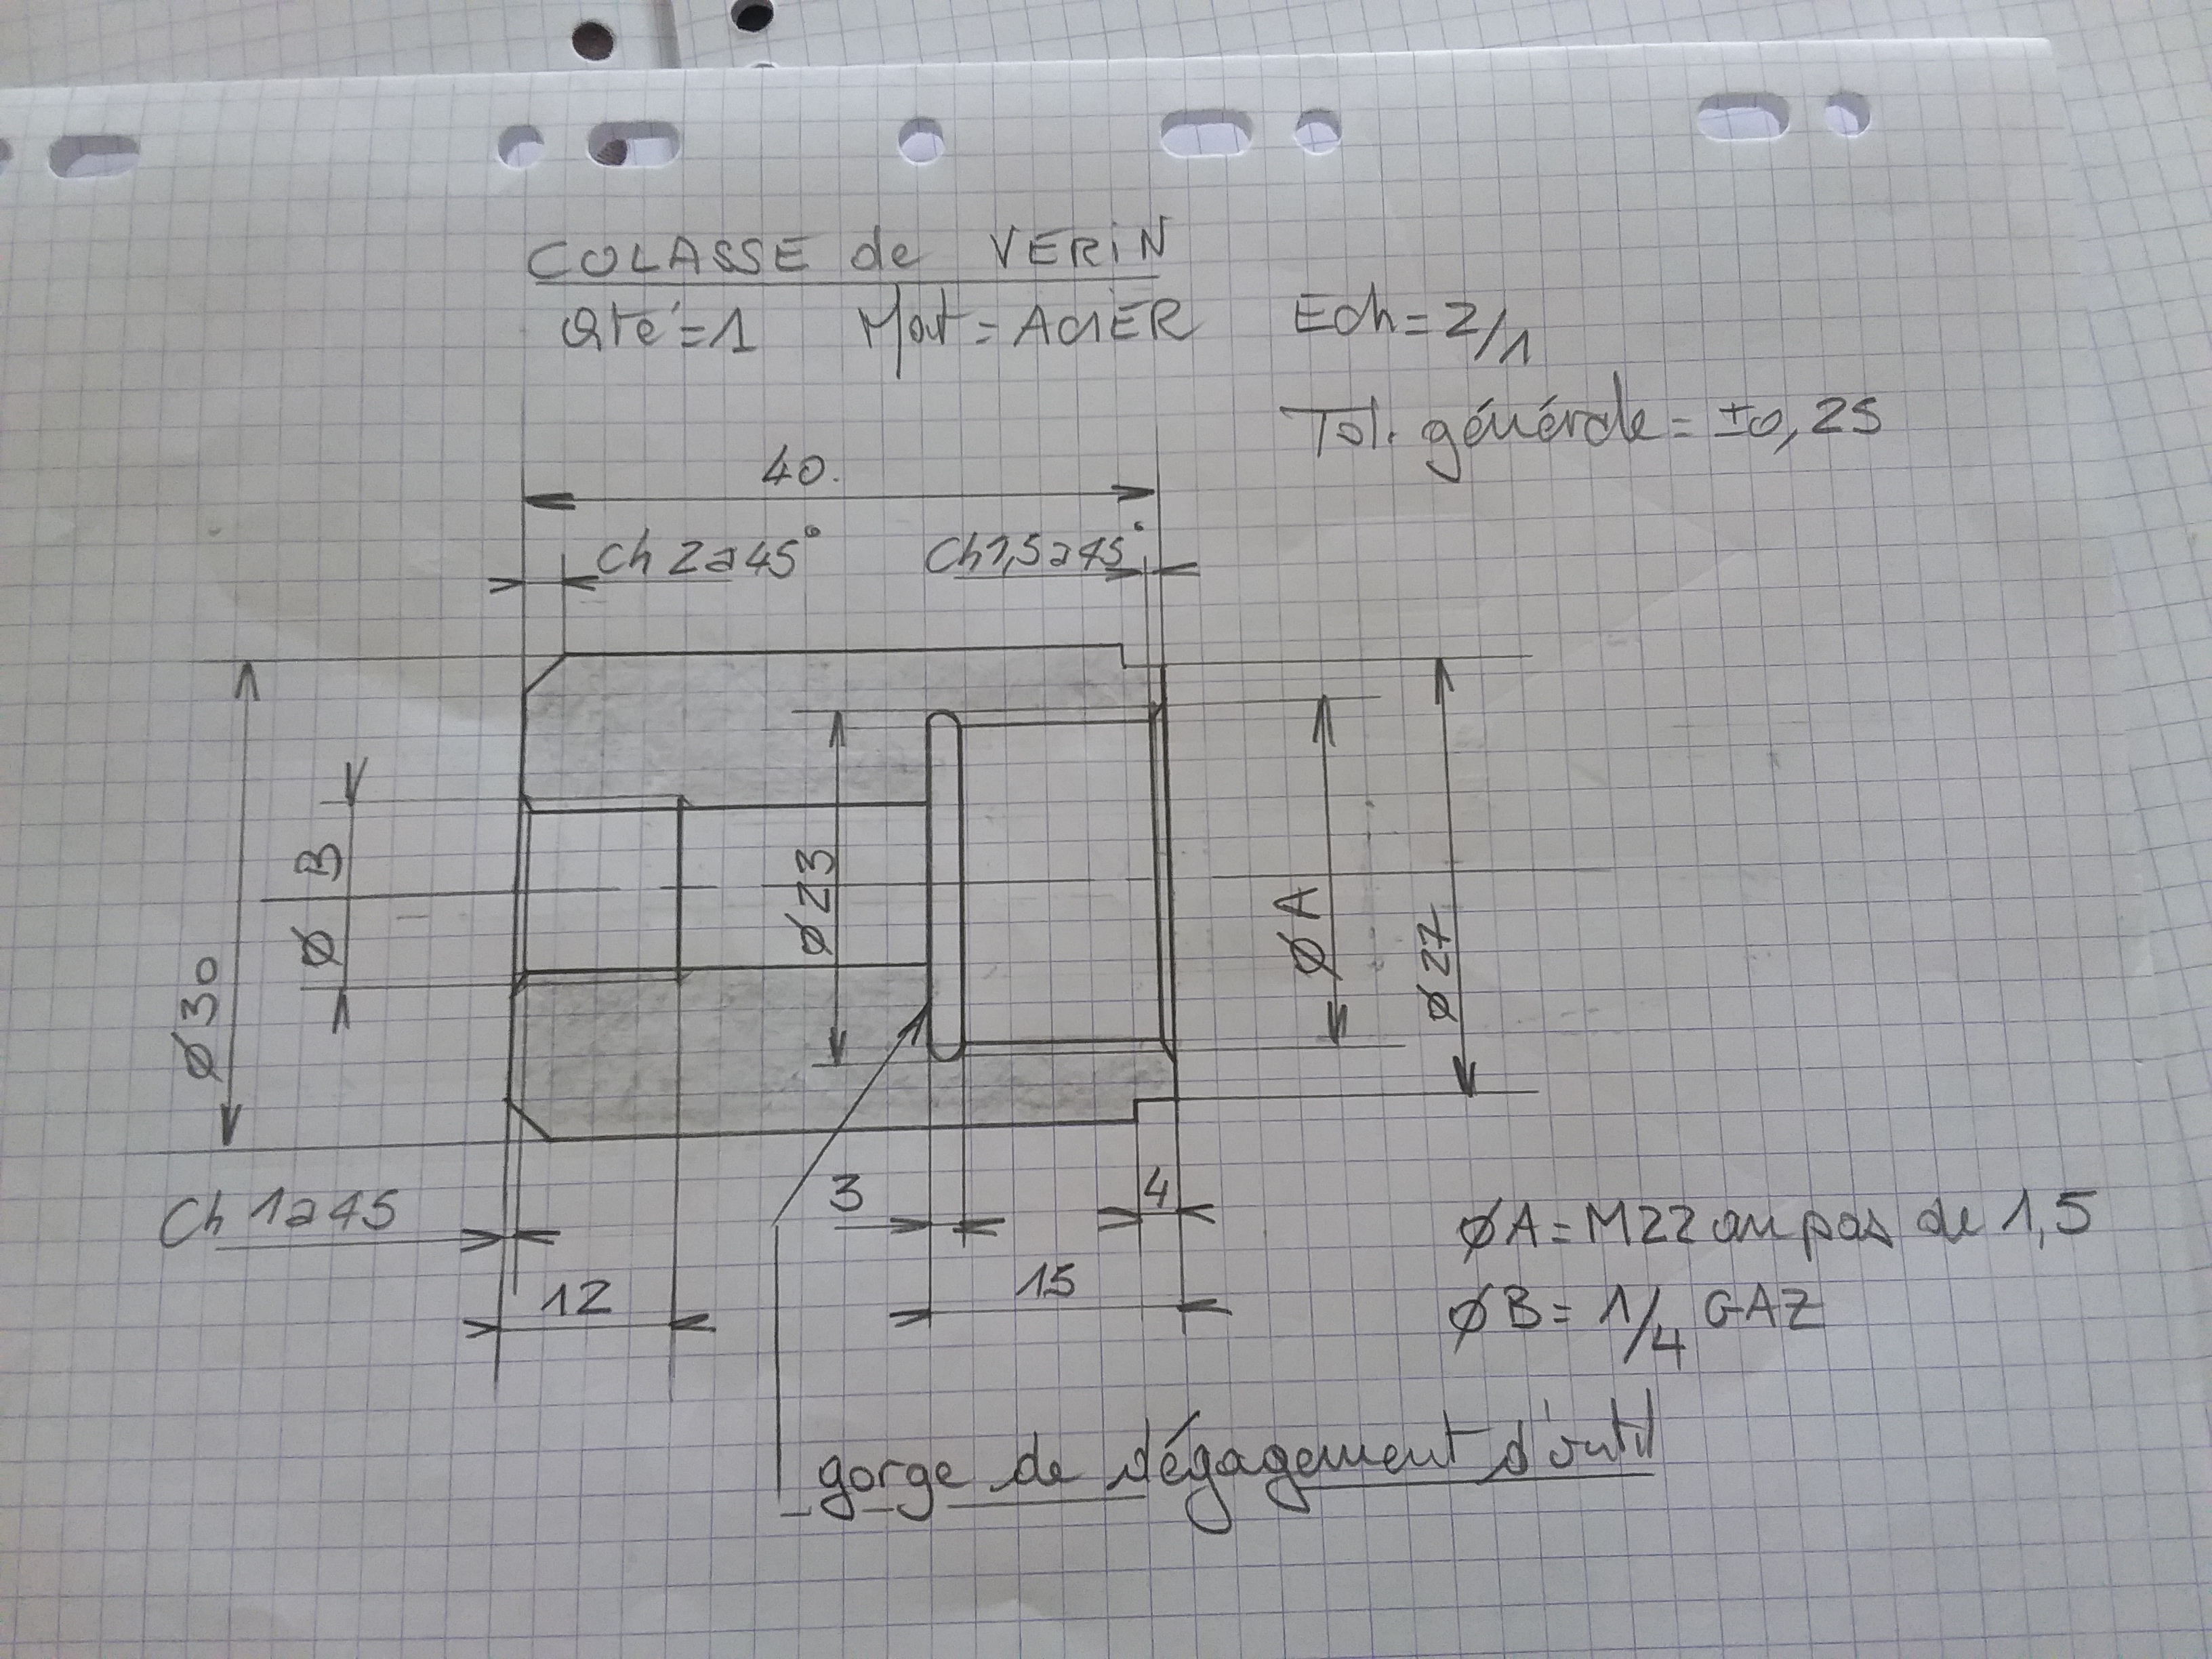 COLASSE de VERIN
Qté=1 Mat=ACIER Ech=2/1
Tol. générale=±0,25
40.
Ch 2à45° Ch1,5à45°
Ø30
Ø B
Ø23
Ø A
Ø27
Ch 1à45
3
4
12
15
ØA=M22 au pas de 1,5
ØB= 1/4 GAZ
gorge de dégagement d'outil